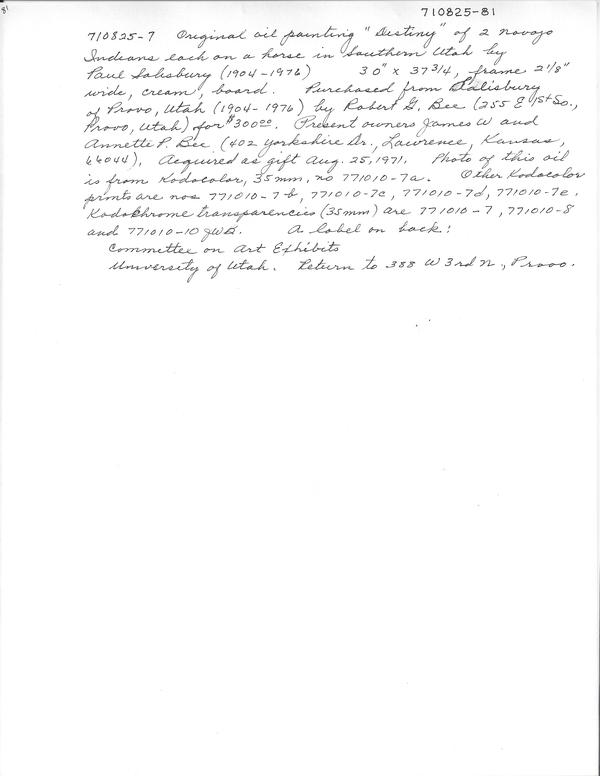 81
710825-81
710825-7 Original oil painting "Destiny" of 2 Navajo
Indians each on a horse in Southern Utah by
Paul Salisbury (1904-1976) 30" x 37 3/4, frame 2 1/8"
wide, cream, board. Purchased from Salisbury
of Provo, Utah (1904-1976) by Robert G. Bee (255 E 1st So.,
Provo, Utah) for $300.00. Present owners James W and
Annette P. Bee (402 Yorkshire Dr., Lawrence, Kansas,
66044), Acquired as gift Aug. 25, 1971. Photo of this oil
is from Kodacolor, 35mm, no 771010-7a. Other Kodacolor
prints are nos 771010-7-b, 771010-7c, 771010-7d, 771010-7e.
Kodachrome transparencies (35mm) are 771010-7, 771010-8
and 771010-10 JWB. A label on back:
Committee on Art Exhibits
University of Utah. Return to 388 W 3rd N., Provo.